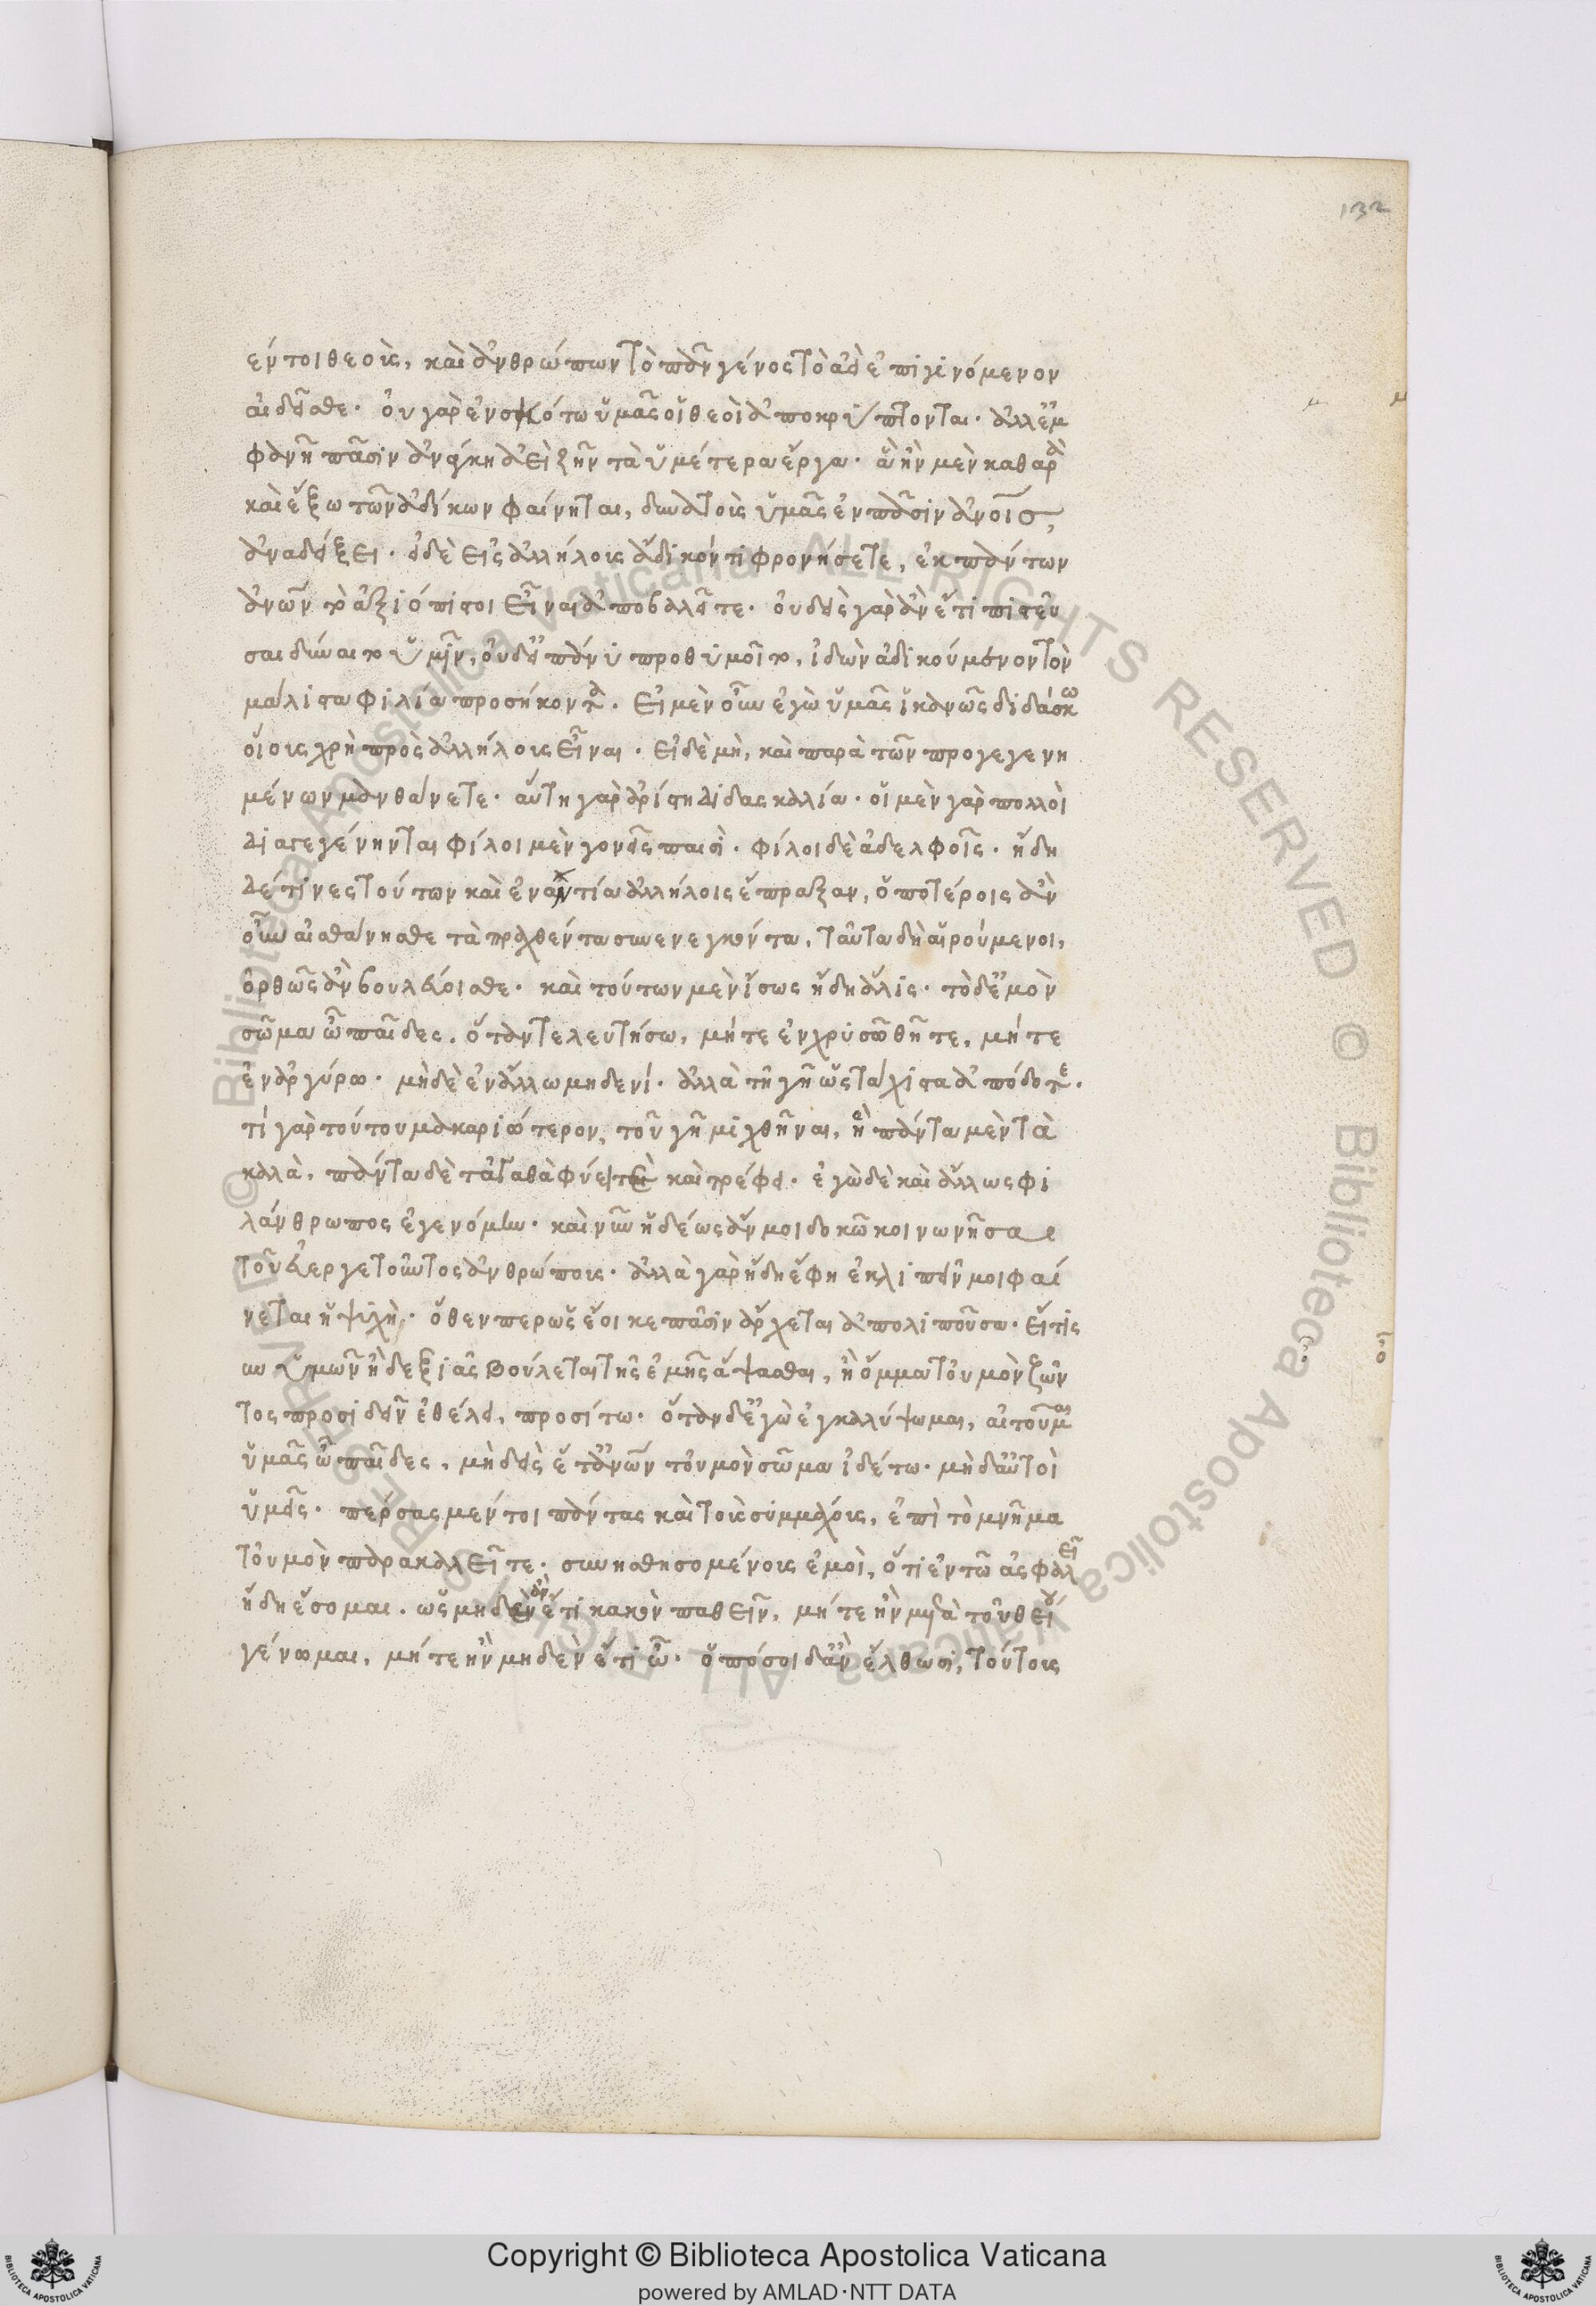 132
έν τοι θεοὺς, καὶ ἀνθρώπων τὸ πᾶν γένος τὸ ἀεὶ ἐπιγινόμενον
αἰδεῖσθε· οὐ γὰρ ἐν σκότω ὑμᾶς οἱ θεοὶ ἀποκρύπτονται· ἀλλ' ἐμ
φανῆ πᾶσιν ἀνάγκη ἀεὶ ζῆν τὰ ὑμέτερα ἔργα· ἃ ἢν μὲν καθαρὰ
καὶ ἔξω τῶν ἀδίκων φαίνηται, δυνατοὺς ὑμᾶς ἐν πᾶσιν ἀνοις
ἀναδείξει· εἰ δὲ εἰς ἀλλήλους ἄδικόν τι φρονήσετε, ἐκ πάντων
ἀνων τὸ ἀξιόπιστοι εἶναι ἀποβαλεῖτε· οὐδεὶς γὰρ ἂν ἔτι πιστεῦ
σαι δύναιτο ὑμῖν, οὐδ' εἰ πάνυ προθυμοῖτο, ἰδὼν ἀδικούμενον τὸν
μάλιστα φιλία προσήκοντα. εἰ μὲν οὖν ἐγὼ ὑμᾶς ἱκανῶς διδάσκω
οἵους χρὴ πρὸς ἀλλήλους εἶναι· εἰ δὲ μὴ, καὶ παρὰ τῶν προγεγενη
μένων μανθάνετε· αὕτη γὰρ ἀρίστη διδασκαλία· οἱ μὲν γὰρ πολλοὶ
διαγεγένηνται φίλοι μὲν γονεῖς παισὶ· φίλοι δὲ ἀδελφοῖς· ἤδη
δέ τινες τούτων καὶ ἐναντία ἀλλήλοις ἔπραξαν, ὁποτέροις ἂν
οὖν αἰσθάνησθε τὰ πραχθέντα συνενεγκόντα, ταῦτα δὴ αἱρούμενοι,
ὀρθῶς ἂν βουλεύοισθε· καὶ τούτων μὲν ἴσως ἤδη ἅλις· τὸ δ' ἐμὸν
σῶμα ὦ παῖδες, ὅταν τελευτήσω, μήτε ἐν χρυσῶ θῆτε, μήτε
ἐν ἀργύρω· μηδὲ ἐν ἄλλω μηδενί· ἀλλὰ τῆ γῆ ὡς τάχιστα ἀπόδοτε.
τί γὰρ τούτου μακαριώτερον, τοῦ γῆ μιχθῆναι, ἣ πάντα μὲν τὰ
καλὰ, πάντα δὲ τἀγαθὰ φύει τε καὶ τρέφει· ἐγὼ δὲ καὶ ἄλλως φι
λάνθρωπος ἐγενόμην· καὶ νῦν ἡδέως ἄν μοι δοκῶ κοινωνῆσαι
τοῦ εὐεργετοῦντος ἀνθρώπους· ἀλλὰ γὰρ ἤδη ἔφη ἐκλιπεῖν μοι φαί
νεται ἡ ψυχὴ, ὅθενπερ ὡς ἔοικε πᾶσιν ἄρχεται ἀπολιποῦσα· εἴ τις
οὖν ὑμῶν ἢ δεξιᾶς βούλεται τῆς ἐμῆς ἅψασθαι, ἢ ὄμμα τοὐμὸν ζῶν
τος προσιδεῖν ἐθέλει, προσίτω· ὅταν δ' ἐγὼ ἐγκαλύψωμαι, αἰτοῦμαι
ὑμᾶς ὦ παῖδες, μηδεὶς ἔτ' ἀνων τοὐμὸν σῶμα ἰδέτω· μηδ' αὐτοὶ
ὑμεῖς· πέρσας μέντοι πάντας καὶ τοὺς συμμάχους, ἐπὶ τὸ μνῆμα
τοὐμὸν παρακαλεῖτε· συνησθησομένους ἐμοὶ, ὅτι ἐν τῶ ἀσφαλεῖ
ἤδη ἔσομαι. ὡς μηδὲν ἂν ἔτι κακὸν παθεῖν, μήτε ἢν μετὰ τοῦ θείου
γένωμαι, μήτε ἢν μηδὲν ἔτι ὦ· ὁπόσοι δ' ἂν ἔλθωσι, τούτους
Copyright © Biblioteca Apostolica Vaticana
powered by AMLAD·NTT DATA